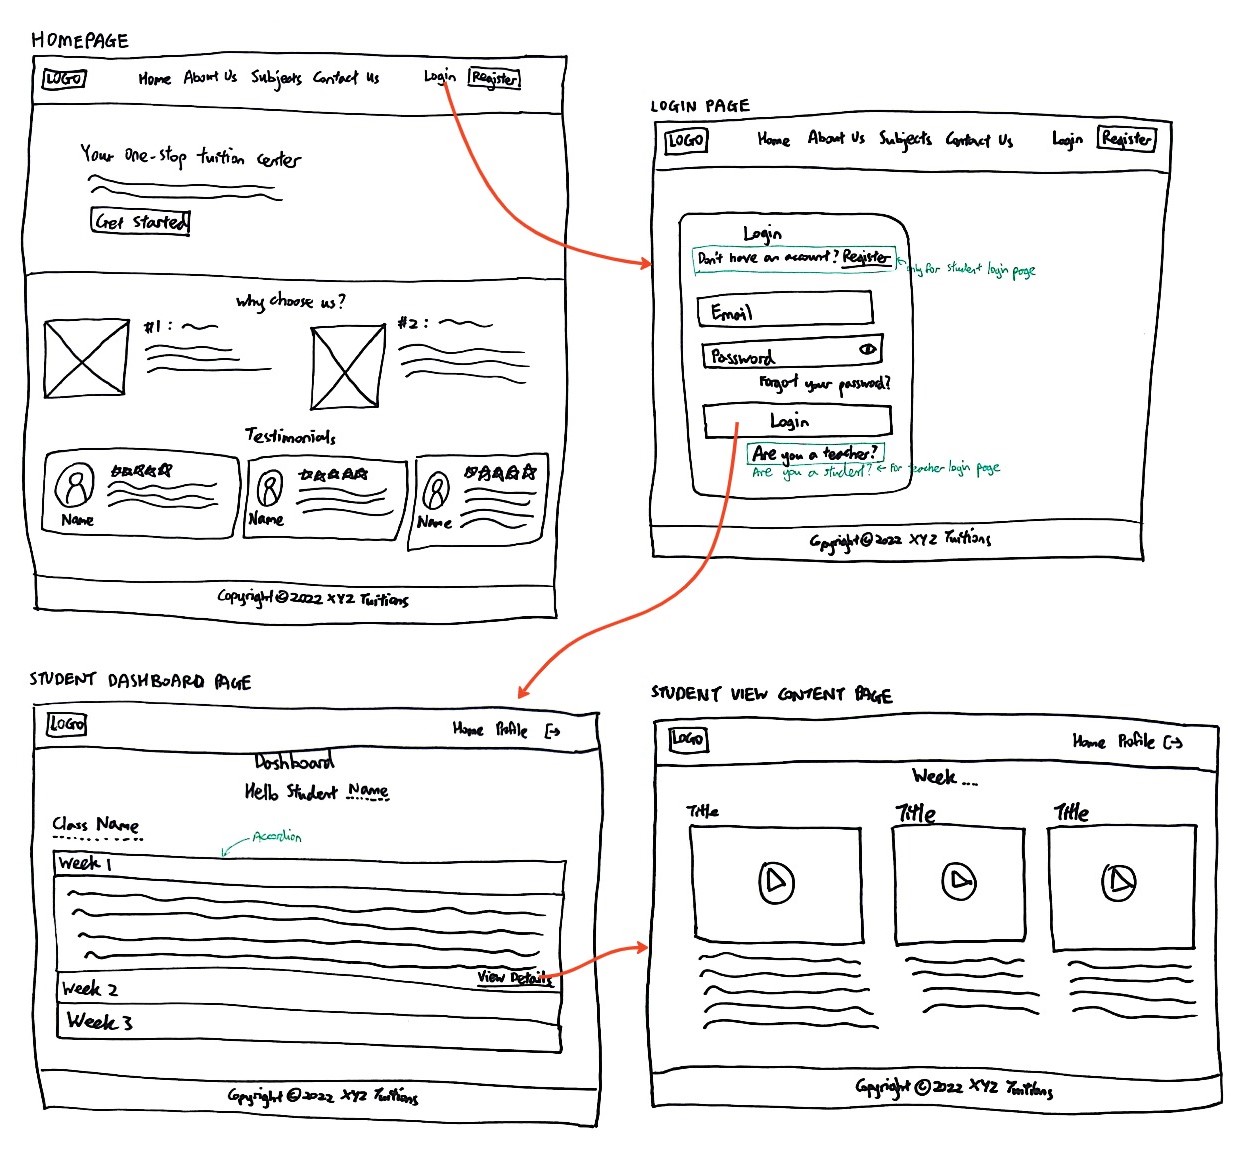 HOMEPAGE
LOGO Home About Us Subjects Contact Us Login Register
Your one-stop tuition center
Get Started
Why choose us?
#1 :
#2 :
Testimonials
Name
Name
Name
Copyright © 2022 XYZ Tuitions
LOGIN PAGE
LOGO Home About Us Subjects Contact Us Login Register
Login
Don't have an account? Register
only for student login page
Email
Password
Forgot your password?
Login
Are you a teacher?
Are you a student? ← for teacher login page
Copyright © 2022 XYZ Tuitions
STUDENT DASHBOARD PAGE
LOGO Home Profile
Dashboard
Hello Student Name
Class Name
Accordion
Week 1
View Details
Week 2
Week 3
Copyright © 2022 XYZ Tuitions
STUDENT VIEW CONTENT PAGE
LOGO Home Profile
Week ...
Title
Title
Title
Copyright © 2022 XYZ Tuitions